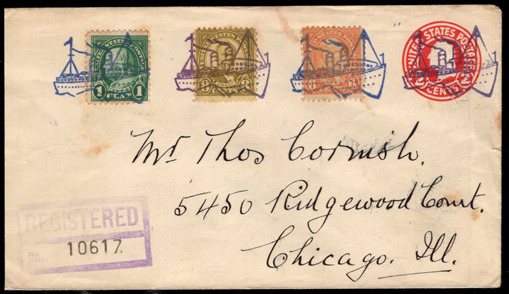 UNITED STATES POSTAGE
1 1
CENTS
Mr Thos Cornish.
5450 Ridgewood Court.
Chicago. Ill.
REGISTERED
No. 10617